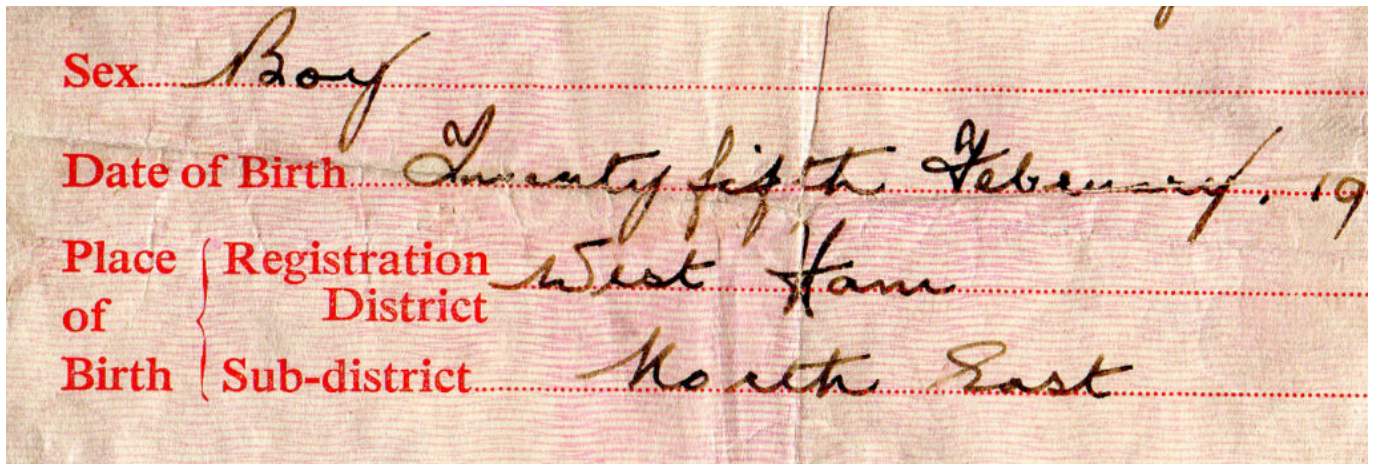 Sex Boy
Date of Birth Twenty fifth February, 19
Place of Birth { Registration District West Ham
Sub-district North East